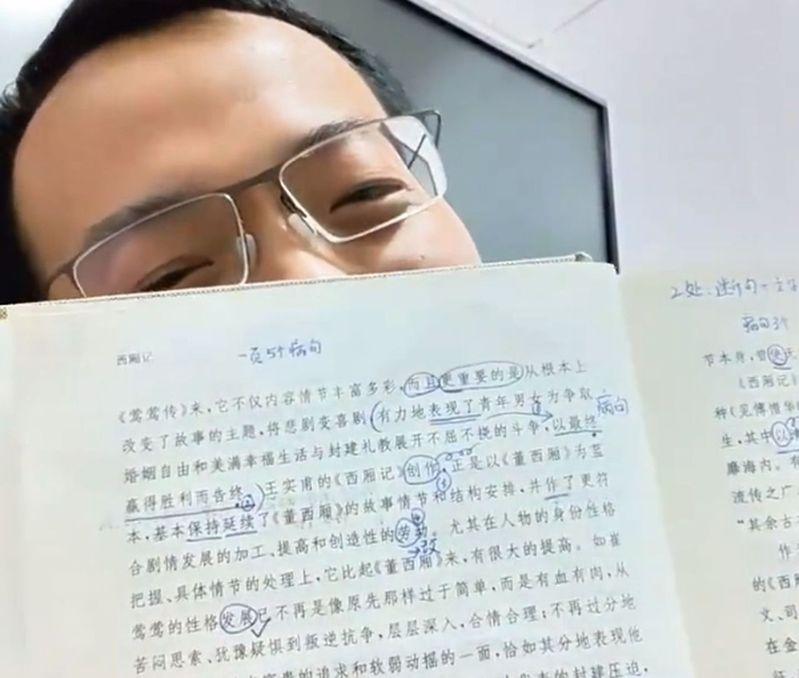 西厢记
一页5个病句
《莺莺传》来,它不仅内容情节丰富多彩,而且更重要的是从根本上
改变了故事的主题,将悲剧变喜剧(有力地表现了青年男女为争取
病句
婚姻自由和美满幸福生活与封建礼教展开不屈不挠的斗争,以最终
赢得胜利而告终。)王实甫的《西厢记》创作,正是以《董西厢》为蓝
本,基本保持延续了《董西厢》的故事情节和结构安排,并作了更符
合剧情发展的加工、提高和创造性的劳动。尤其在人物的身份性格
改
把握、具体情节的处理上,它比起《董西厢》来,有很大的提高。如崔
莺莺的性格发展已不再是像原先那样过于简单,而是有血有肉,从
苦闷思索、犹豫疑惧到叛逆抗争,层层深入,合情合理;不再过分地
的追求和软弱动摇的一面,恰如其分地表现他
的封建压迫,
2处:断句一
病句3个
节本身,曾
《西厢记》
种《见
生,其中以
靡海内。有
流传之广
“其余古
作
的《西厢
文、司
在金